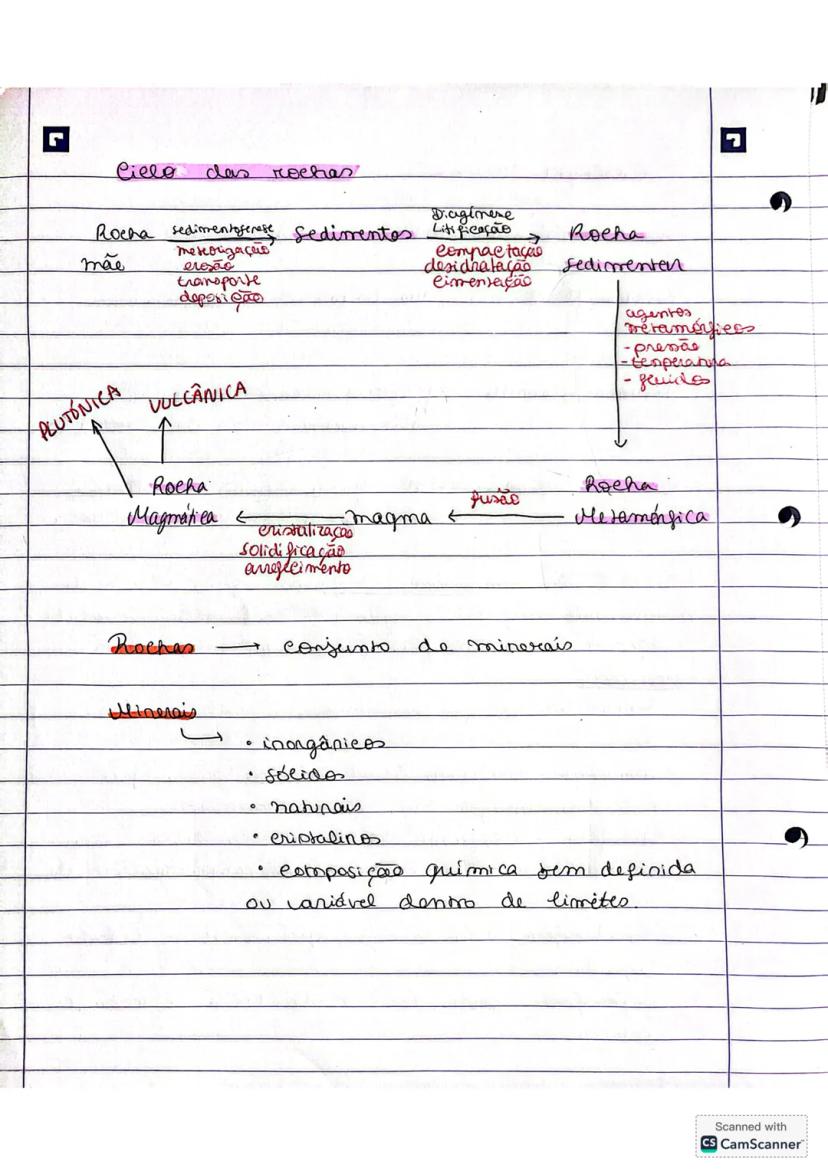 Ciclo das rochas
Rocha mãe
sedimentogénese
meteorização
erosão
transporte
deposição
Sedimentos
Diagénese
Litificação
compactação
desidratação
cimentação
Rocha
sedimentar
agentes
metamórficos
- pressão
- temperatura
- fluidos
PLUTÓNICA
VULCÂNICA
Rocha
Magmática
cristalização
solidificação
arrefecimento
magma
fusão
Rocha
Metamórfica
Rochas → conjunto de minerais
Minerais
• inorgânicos
• sólidos
• naturais
• cristalinos
• composição química bem definida
ou variável dentro de limites.
Scanned with
CS CamScanner